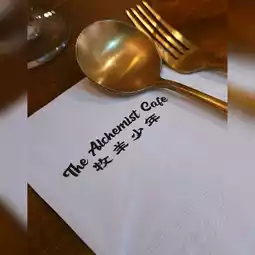 The Alchemist Cafe
牧羊少年